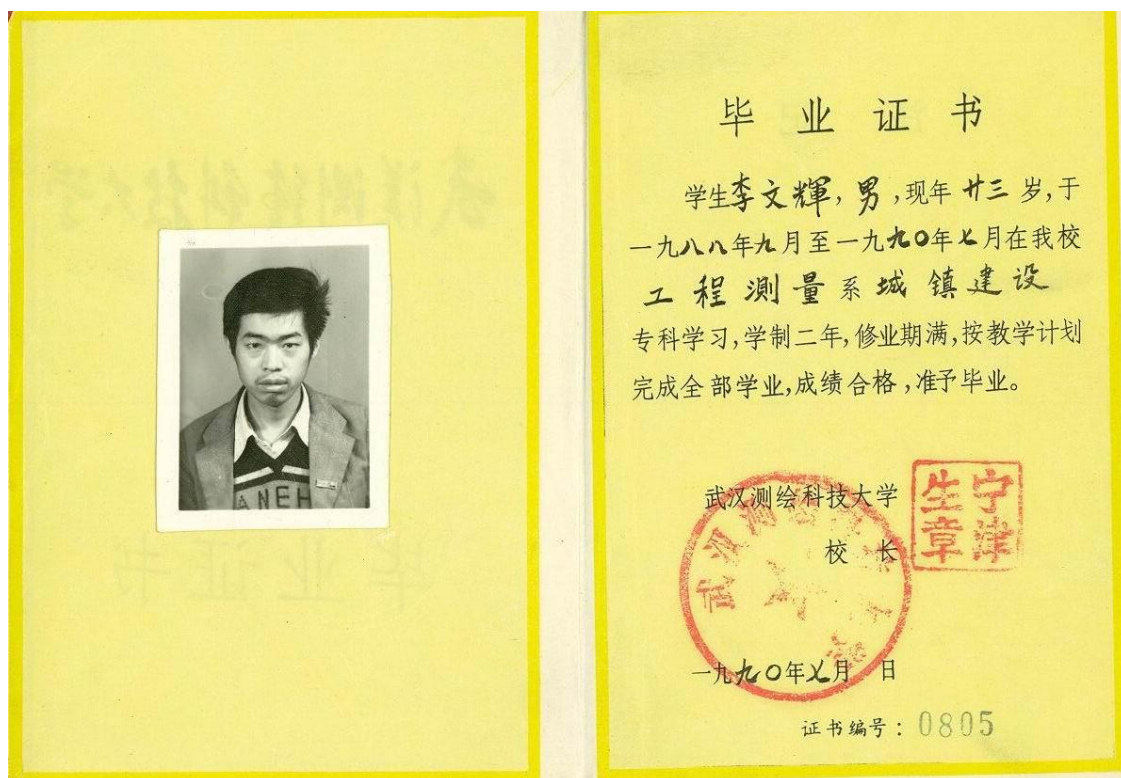 ANEH
毕业证书
学生李文輝,男,现年廿三岁,于
一九八八年九月至一九九〇年七月在我校
工程测量系城镇建设
专科学习,学制二年,修业期满,按教学计划
完成全部学业,成绩合格,准予毕业。
武汉测绘科技大学
校长
宁津生章
武汉测绘科技大学
一九九〇年七月 日
证书编号:0805